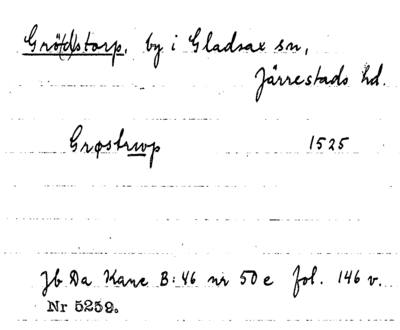 Grö(d)storp, by i Gladsax sn,
Järrestads hd.
Grøstrwp 1525
Jb Da Kanc B:46 nr 50 e fol. 146 v.
Nr 5259.